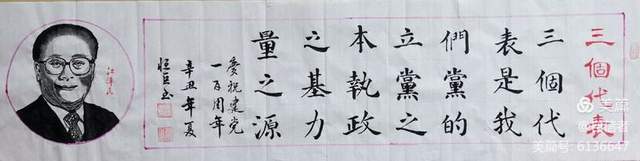 三個代表
三個代
表是我
們黨的
立黨之
本執政
之基力
量之源
慶祝建党
一百周年
辛丑年夏
美篇
美篇号: 6136647